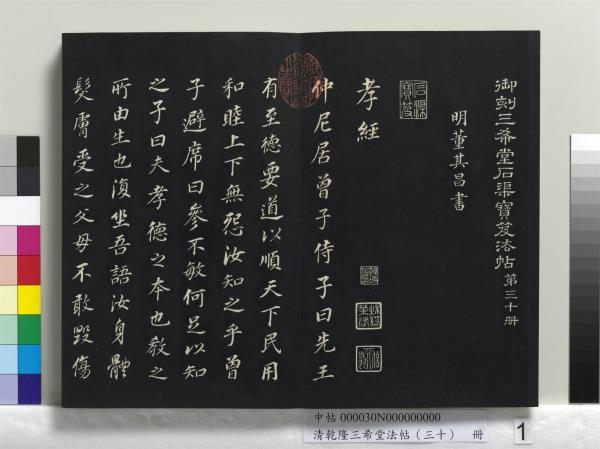 御刻三希堂石渠寶笈法帖 第三十冊
明董其昌書
石渠寶笈
孝經
仲尼居曾子侍子曰先王
有至德要道以順天下民用
和睦上下無怨汝知之乎曾
子避席曰參不敏何足以知
之子曰夫孝德之本也教之
所由生也復坐吾語汝身體
髮膚受之父母不敢毀傷
中帖 000030N000000000
清乾隆三希堂法帖（三十） 冊
1